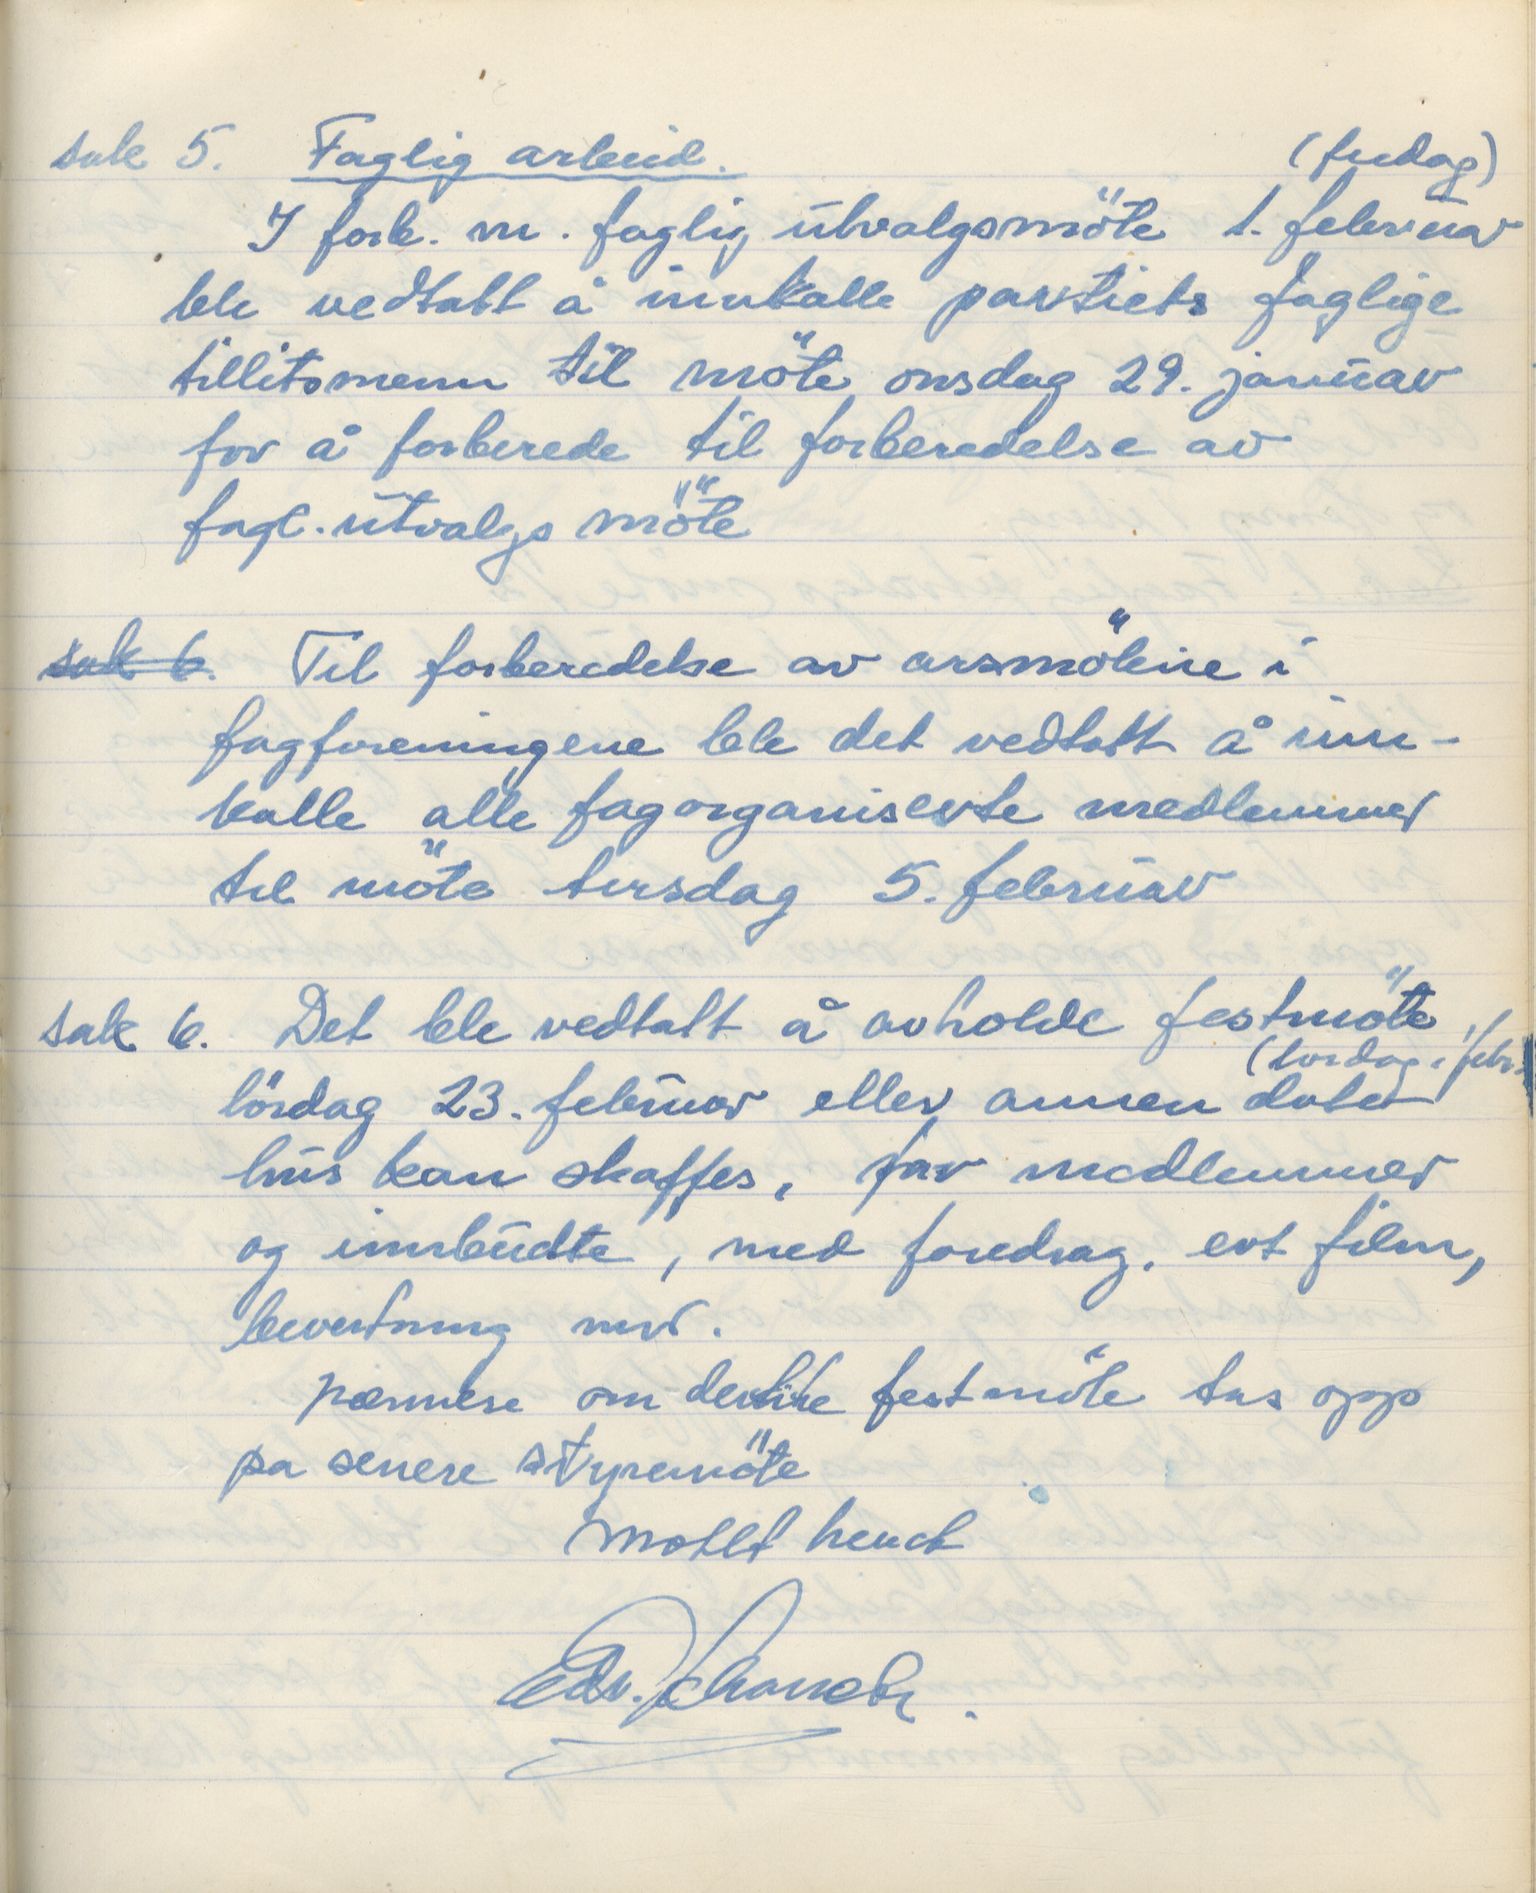 sak 5. Faglig arbeid. (fredag)
I forb. m. faglig utvalgsmöte 1. februar
ble vedtatt å innkalle partiets faglige
tillitsmenn til möte onsdag 29. januar
for å forberede til forberedelse av
fagl. utvalgs möte
sak 6. Til forberedelse av arsmötene i
fagforeningene ble det vedtatt å inn-
kalle alle fagorganiserte medlemmer
til möte tirsdag 5. februar
sak 6. Det ble vedtatt å avholde festmöte
(lordag i febr.
lördag 23. februar eller annen dato
hus kan skaffes, for medlemmer
og innbudte, med foredrag, evt film,
bevertning mv.
nærmere om dette festmöte tas opp
pa senere styremöte
Möllt hevet